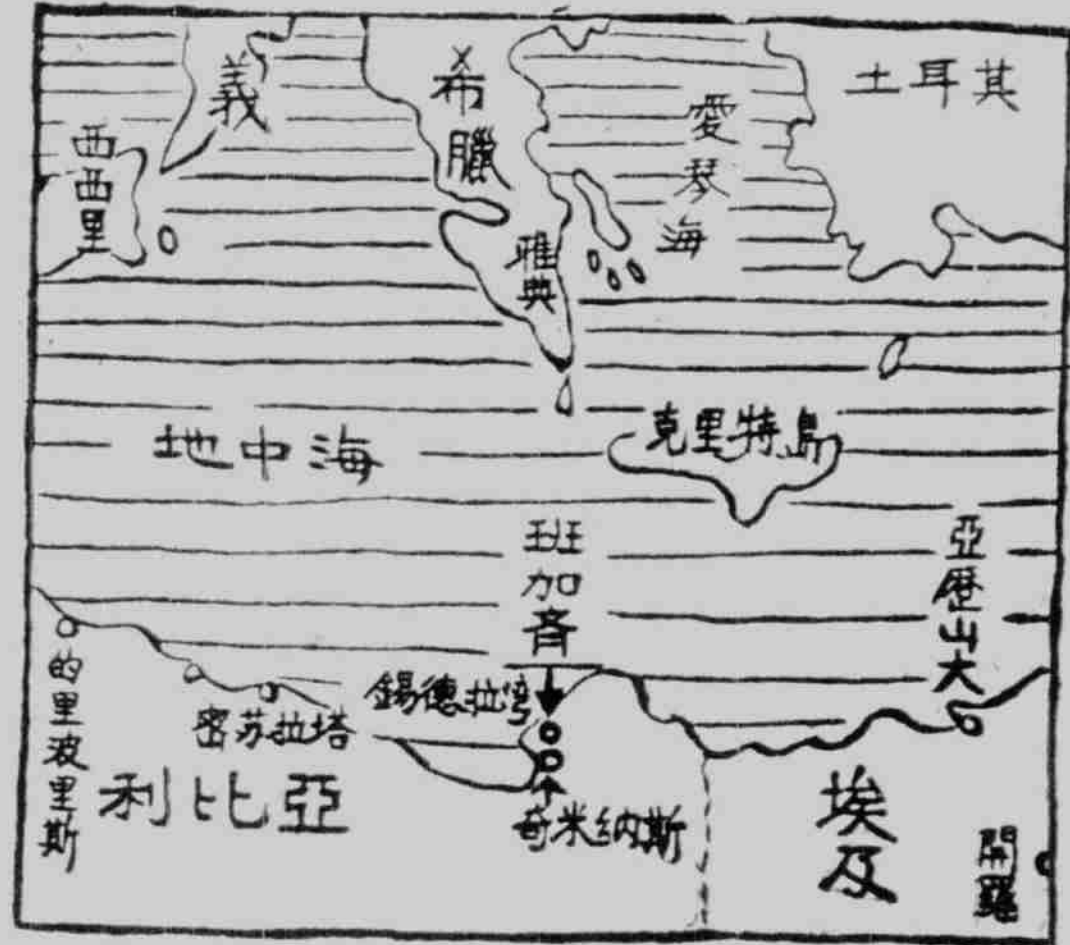 義
希臘
愛琴海
土耳其
西西里
雅典
地中海
克里特島
班加斉
亞歷山大
錫德拉湾
的里波里斯
密苏拉塔
利比亞
奇米纳斯
埃及
開羅